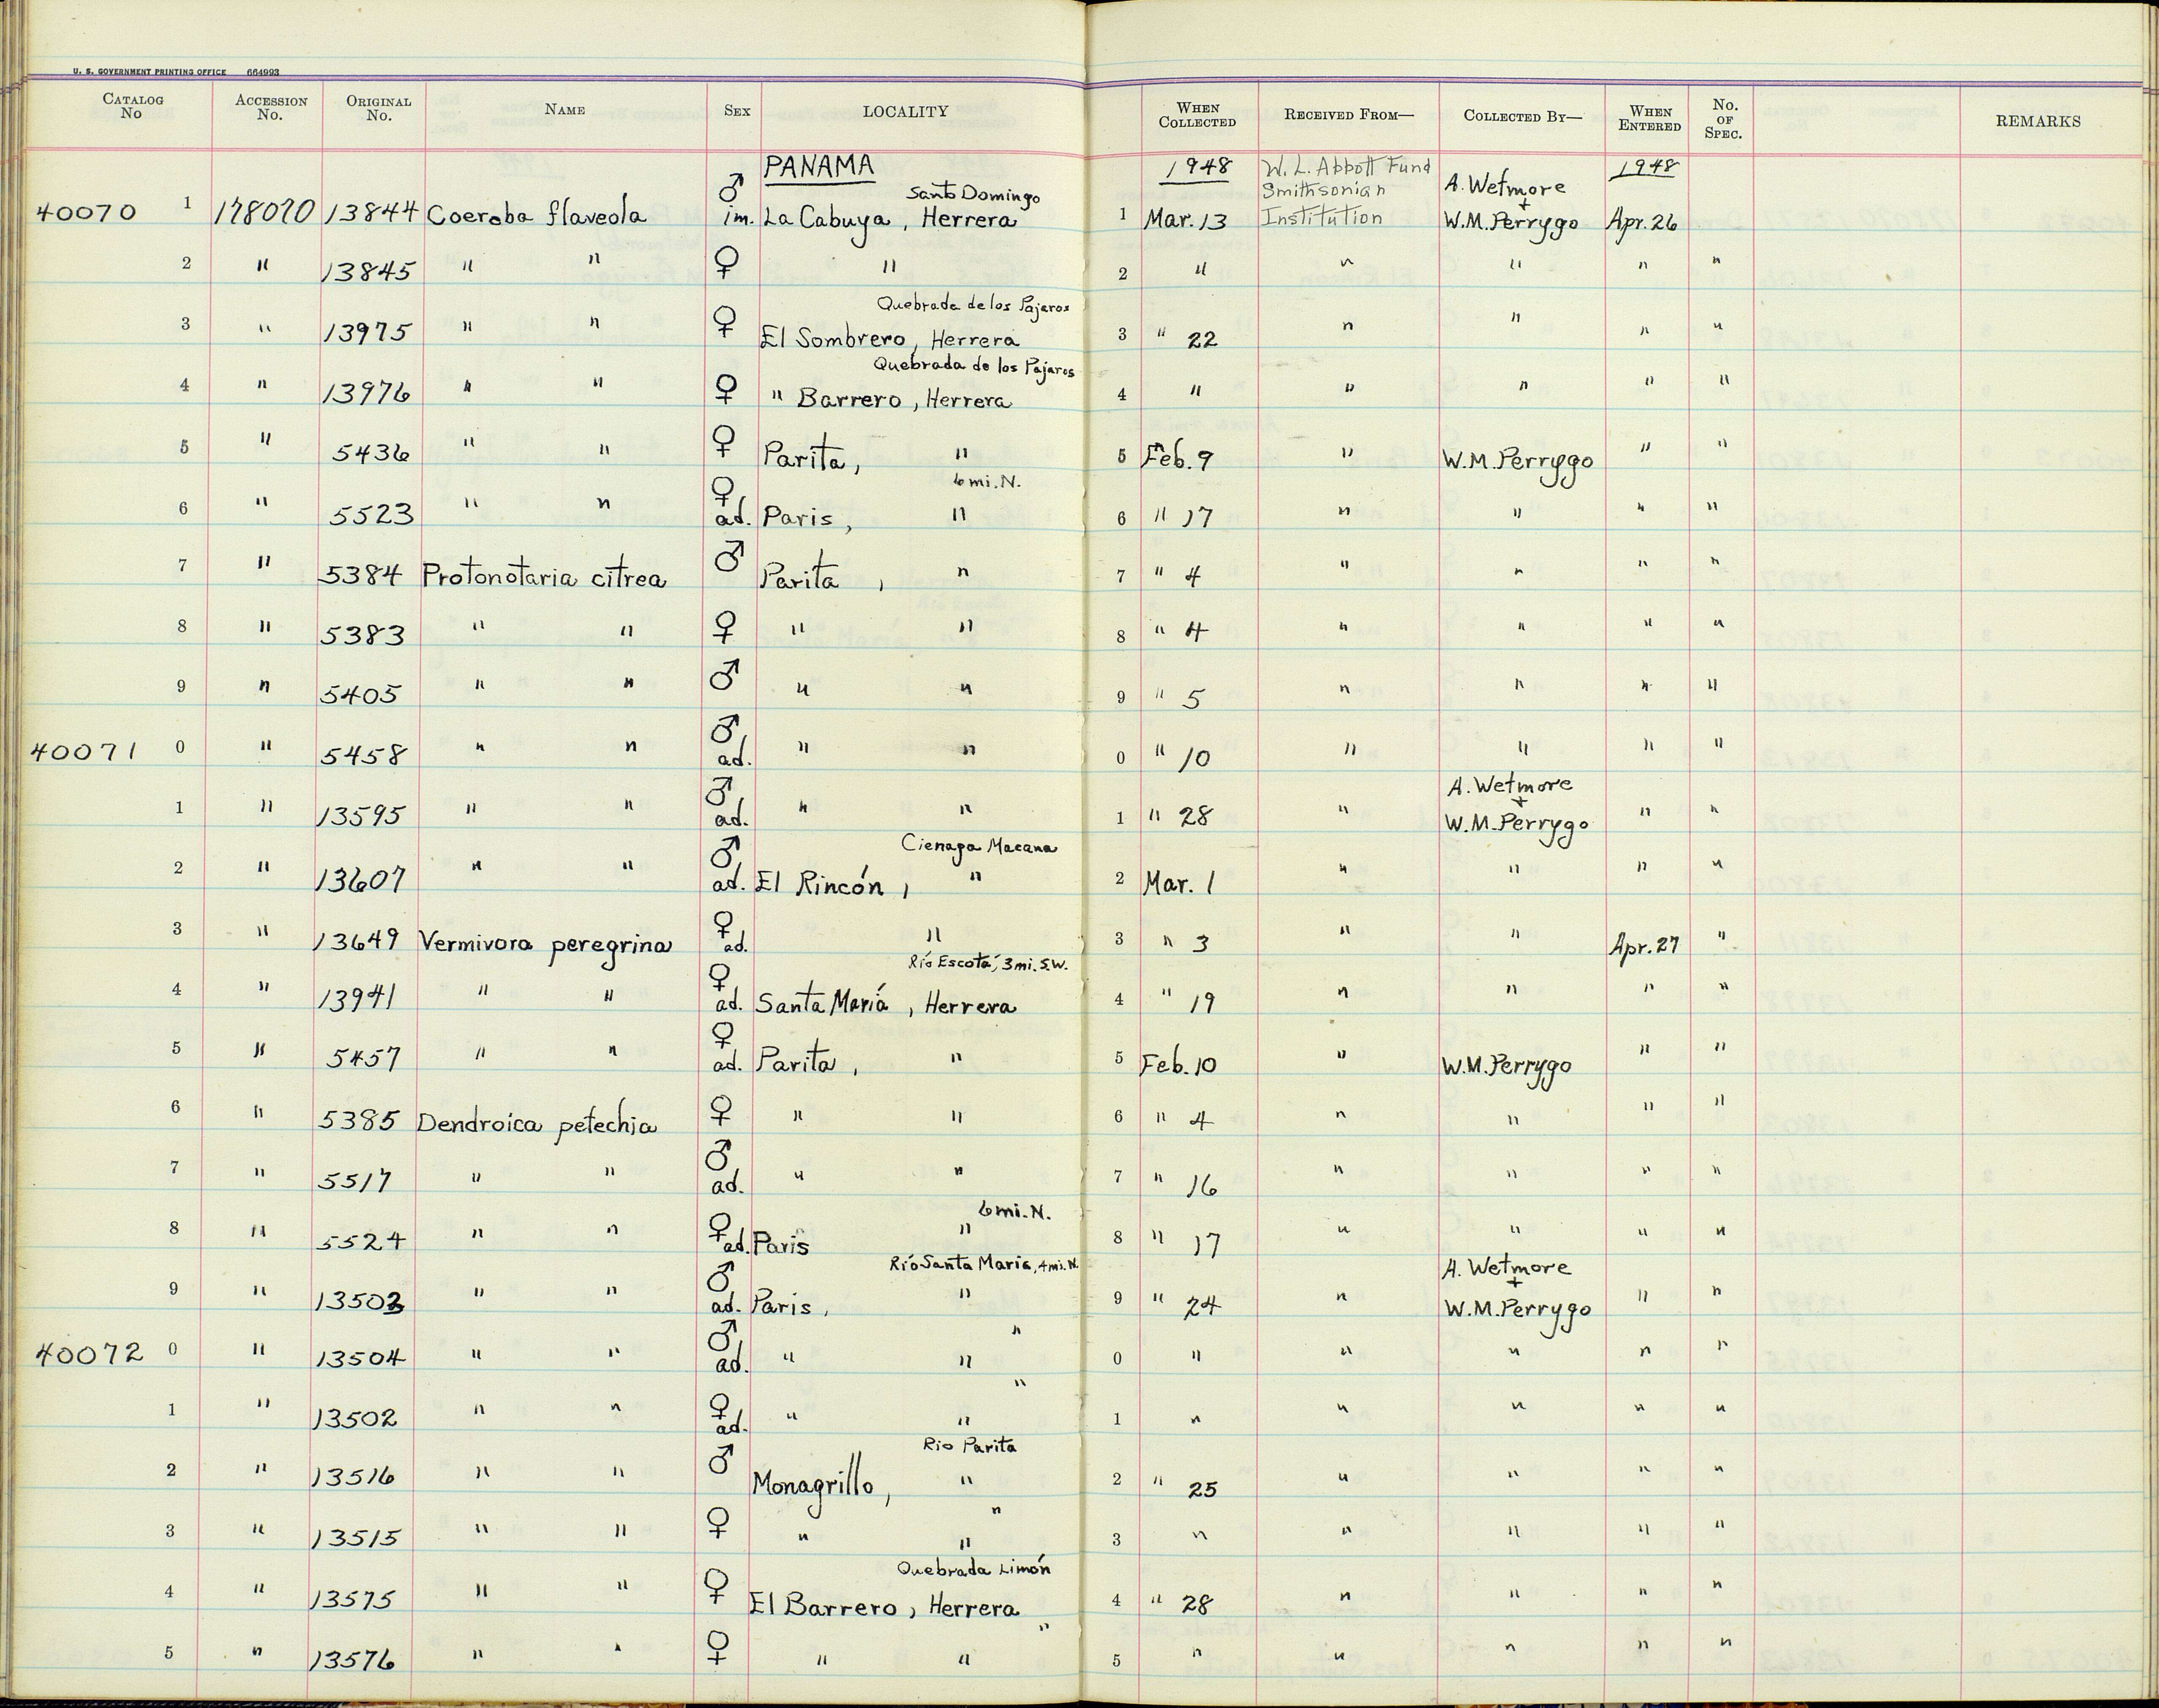 U. S. GOVERNMENT PRINTING OFFICE 664993
CATALOG No ACCESSION No. ORIGINAL No. NAME SEX LOCALITY WHEN COLLECTED RECEIVED FROM— COLLECTED BY— WHEN ENTERED No. OF SPEC. REMARKS
PANAMA 1948 W. L. Abbott Fund 1948
♂ Santo Domingo Smithsonian A. Wetmore +
40070 1 178070 13844 Coereba flaveola im. La Cabuya, Herrera 1 Mar. 13 Institution W.M. Perrygo Apr. 26
2 " 13845 " " ♀ " 2 " " " " "
Quebrada de los Pajaros
3 " 13975 " " ♀ El Sombrero, Herrera 3 " 22 " " " "
Quebrada de los Pajaros
4 " 13976 " " ♀ " Barrero, Herrera 4 " " " " "
5 " 5436 " " ♀ Parita, " 5 Feb. 9 " W.M. Perrygo " "
♀ 6 mi. N.
6 " 5523 " " ad. Paris, " 6 " 17 " " " "
7 " 5384 Protonotaria citrea ♂ Parita, " 7 " 4 " " " "
8 " 5383 " " ♀ " " 8 " 4 " " " "
9 " 5405 " " ♂ " " 9 " 5 " " " "
40071 0 " 5458 " " ♂ ad. " " 0 " 10 " " " "
A. Wetmore +
1 " 13595 " " ♂ ad. " " 1 " 28 " W.M. Perrygo " "
Cienaga Macana
2 " 13607 " " ♂ ad. El Rincón, " 2 Mar. 1 " " " "
3 " 13649 Vermivora peregrina ♀ ad. " 3 " 3 " " Apr. 27 "
Río Escotá, 3 mi. S.W.
4 " 13941 " " ♀ ad. Santa María, Herrera 4 " 19 " " " "
5 " 5457 " " ♀ ad. Parita, " 5 Feb. 10 " W.M. Perrygo " "
6 " 5385 Dendroica petechia ♀ " " 6 " 4 " " " "
7 " 5517 " " ♂ ad. " " 7 " 16 " " " "
6 mi. N.
8 " 5524 " " ♀ ad. Paris " 8 " 17 " " " "
Río Santa Maria, 4 mi. N. A. Wetmore +
9 " 13503 " " ♂ ad. Paris, " 9 " 24 " W.M. Perrygo " "
"
40072 0 " 13504 " " ♂ ad. " " 0 " " " " "
"
1 " 13502 " " ♀ ad. " " 1 " " " " "
Rio Parita
2 " 13516 " " ♂ Monagrillo, " 2 " 25 " " " "
"
3 " 13515 " " ♀ " " 3 " " " " "
Quebrada Limón
4 " 13575 " " ♀ El Barrero, Herrera 4 " 28 " " " "
"
5 " 13576 " " ♀ " " 5 " " " " "